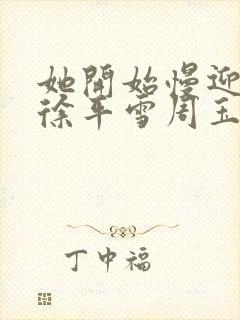 她開始慢迎
徐平雪周玉
丁中福